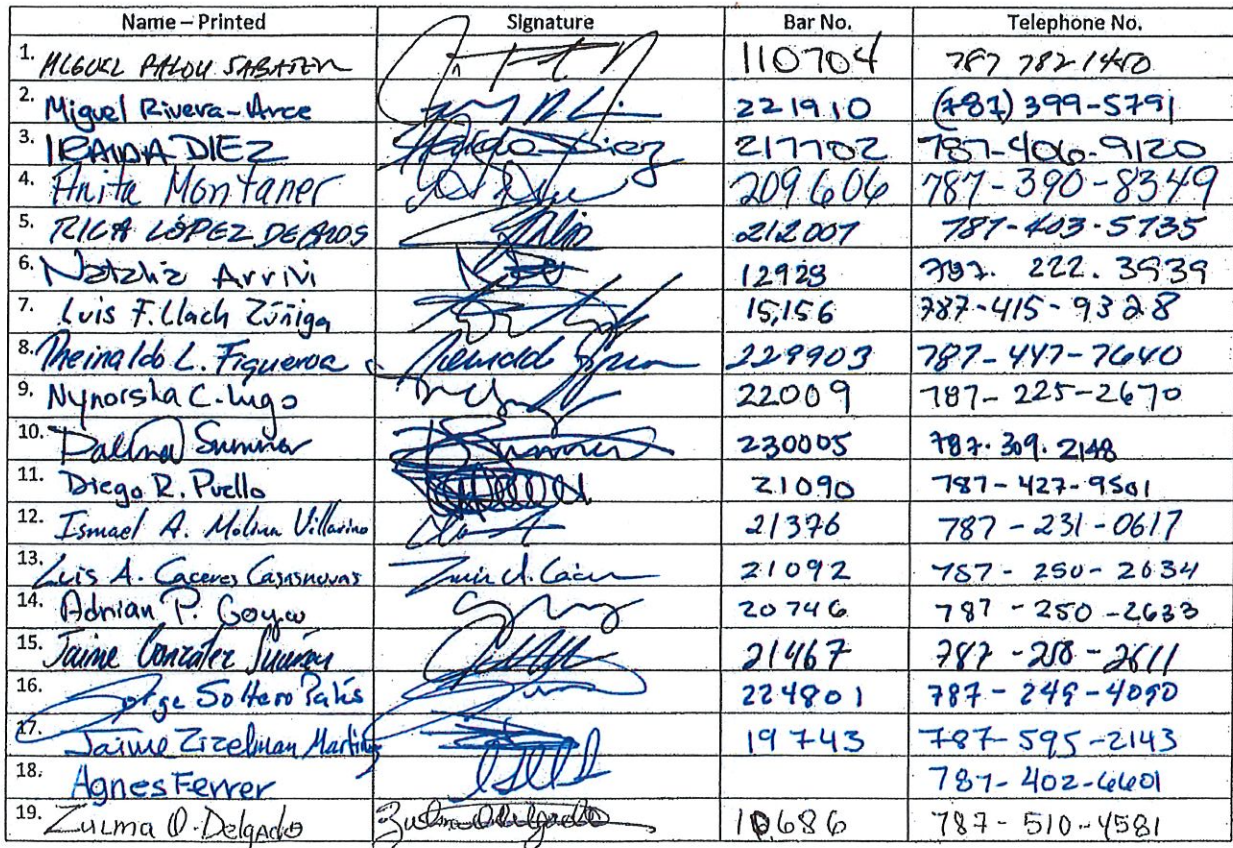 Name – Printed Signature Bar No. Telephone No.
1. MIGUEL PALOU SABATER 110704 787 782 1450
2. Miguel Rivera-Arce 221910 (787) 399-5791
3. IRAIDA DIEZ Iraida Diez 217702 787-406-9120
4. Anita Montaner 209606 787-390-8349
5. RICA LÓPEZ DE AZÚS 212007 787-403-5735
6. Natalia Arrivi 12928 787. 222. 3939
7. Luis F. Llach Zúñiga 15,156 787-415-9328
8. Rheinaldo L. Figueroa 229903 787-447-7640
9. Nynorsha C. Lugo 22009 787-225-2670
10. Dalina Sumner 230005 787. 309. 2148
11. Diego R. Puello 21090 787-427-9501
12. Ismael A. Molina Villarino 21376 787-231-0617
13. Luis A. Caceres Casasnovas 21092 787-250-2634
14. Adrian P. Goyco 20746 787-250-2633
15. Jaime González 21467 787-250-2611
16. Jorge Soltero Palés 224801 787-249-4090
17. Jaime Zizelman Martinez 19743 787-595-2143
18. Agnes Ferrer 787-402-6601
19. Zulma O. Delgado Zulma O. Delgado 10,686 787-510-4581